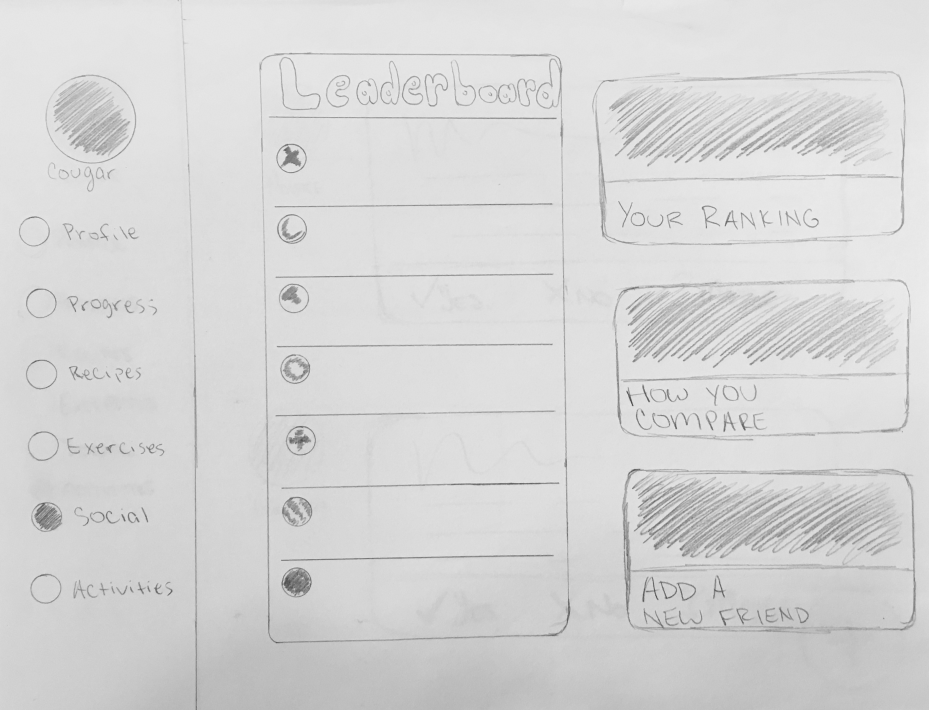 Cougar
Profile
Progress
Recipes
Exercises
Social
Activities
Leaderboard
YOUR RANKING
HOW YOU
COMPARE
ADD A
NEW FRIEND